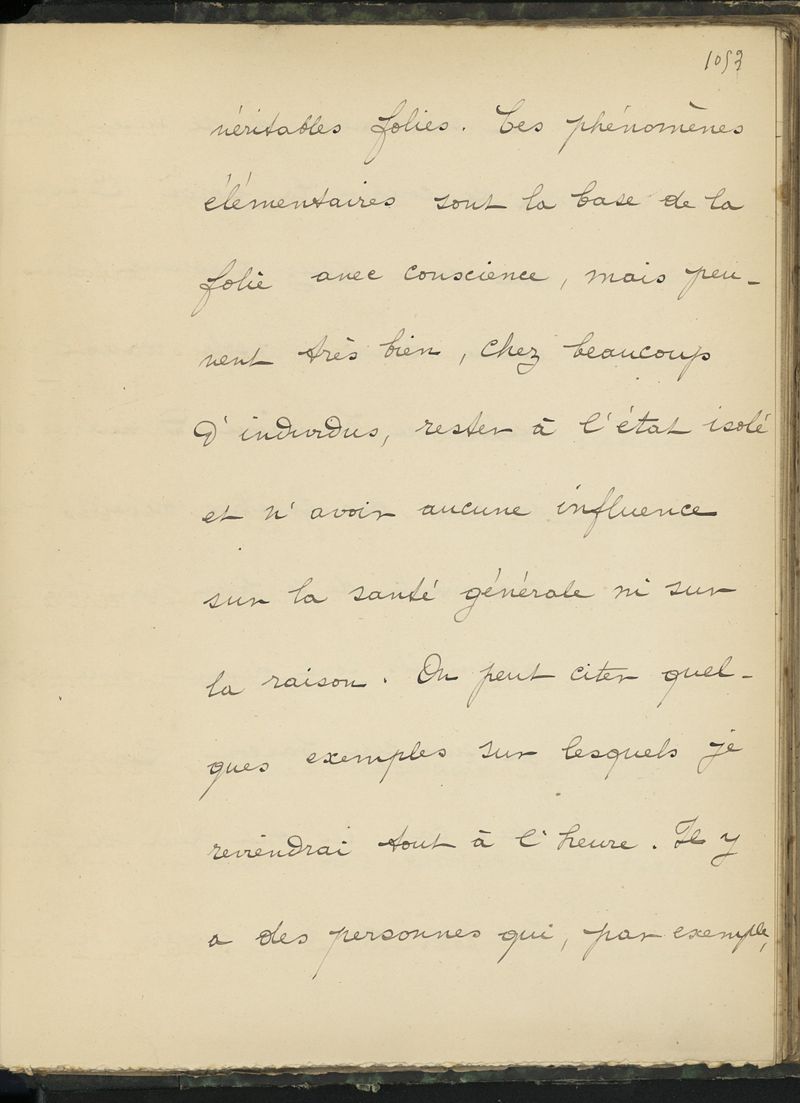 1053
véritables folies. Ces phénomènes
élémentaires sont la base de la
folie avec conscience, mais peu-
vent très bien, chez beaucoup
d'individus, rester à l'état isolé
et n'avoir aucune influence
sur la santé générale ni sur
la raison. On peut citer quel-
ques exemples sur lesquels je
reviendrai tout à l'heure. Il y
a des personnes qui, par exemple,